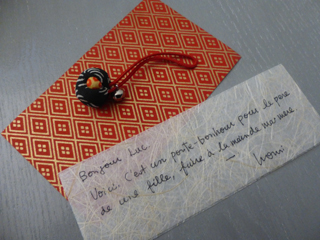 Bonjour Luc.
Voici. C'est un porte-bonheur pour le pere
de une fille, faire à la main de ma mère.